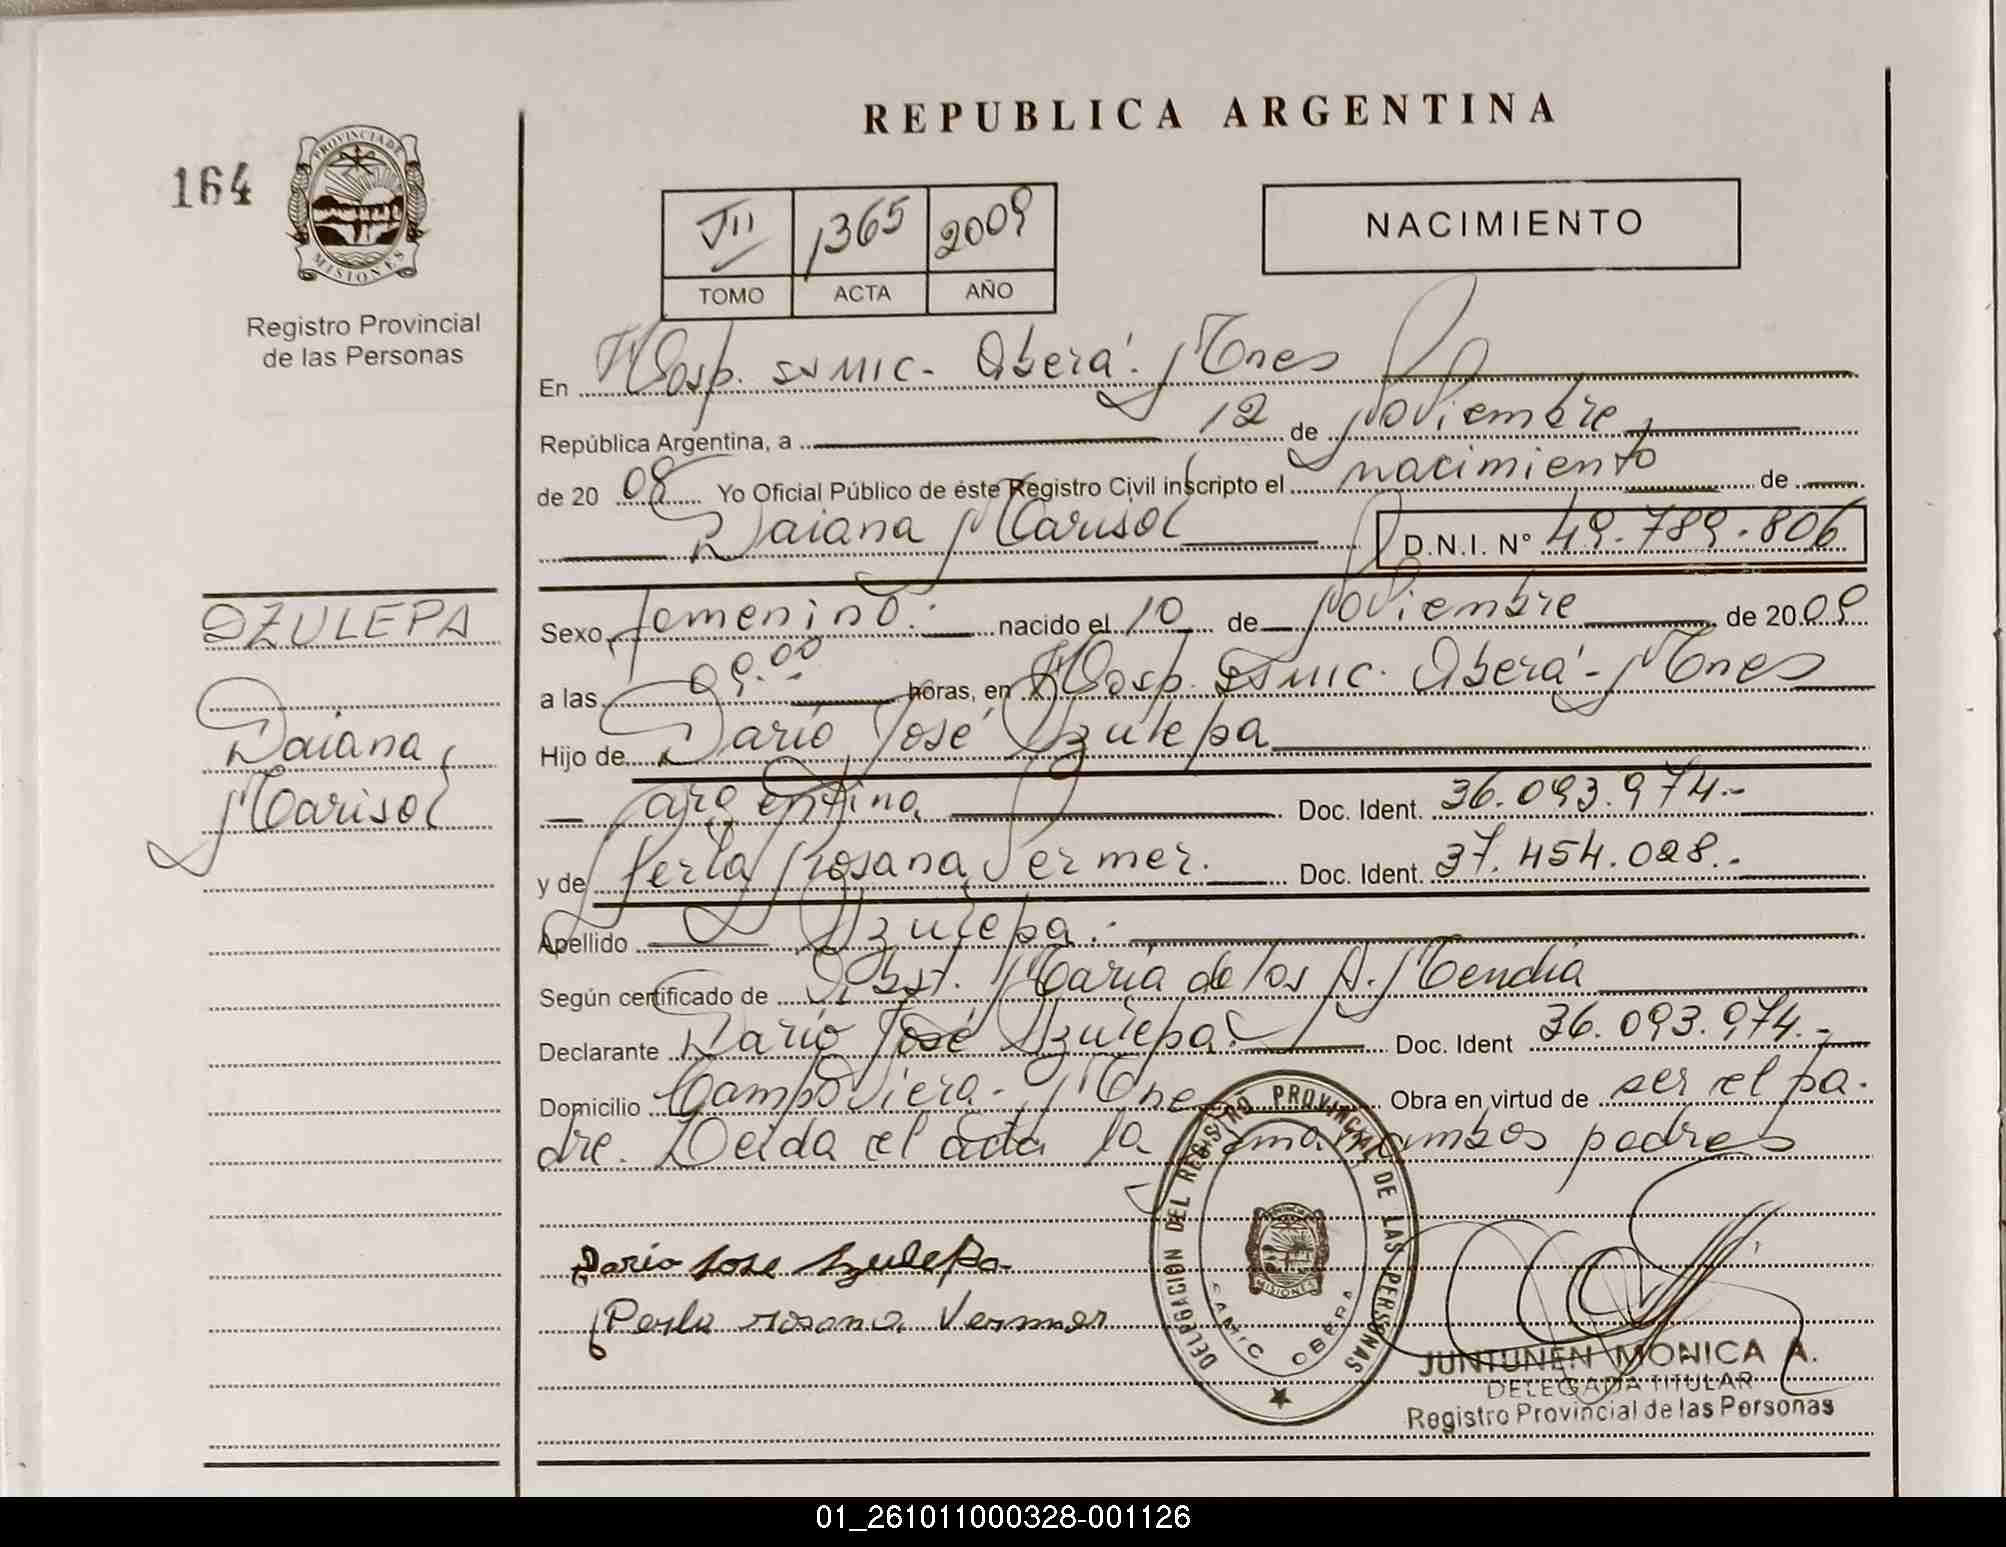 REPUBLICA ARGENTINA
164
PROVINCIA DE
MISIONES
Registro Provincial
de las Personas
NACIMIENTO
III 1365 2009
TOMO ACTA AÑO
En Hosp. SAMIC - Oberá - Mnes
República Argentina, a 12 de Noviembre
de 20 09 Yo Oficial Público de éste Registro Civil inscripto el nacimiento de
Daiana Marisol D.N.I. N° 49.789.806
Sexo femenino. nacido el 10 de Noviembre de 2009
a las 09:00 horas, en Hosp. SAMIC. Oberá - Mnes
Hijo de Darío José Dzulepa
argentina Doc. Ident. 36.093.974.-
y de Perla Rosana Vermer. Doc. Ident. 37.454.028.-
Apellido Dzulepa.
Según certificado de Obst. María de los A. Mendia
Declarante Darío José Dzulepa. Doc. Ident 36.093.974.-
Domicilio Campo Viera - Mne Obra en virtud de ser el pa.
dre. Leida el acta la firman ambos padres
DZULEPA
Daiana
Marisol
Dario Jose Dzulepa
Perla rosana Vermer
DELEGACION DEL REGISTRO PROVINCIAL DE LAS PERSONAS
SAMIC OBERA
MISIONES
JUNTUNEN MONICA A.
DELEGADA TITULAR
Registro Provincial de las Personas
01_261011000328-001126